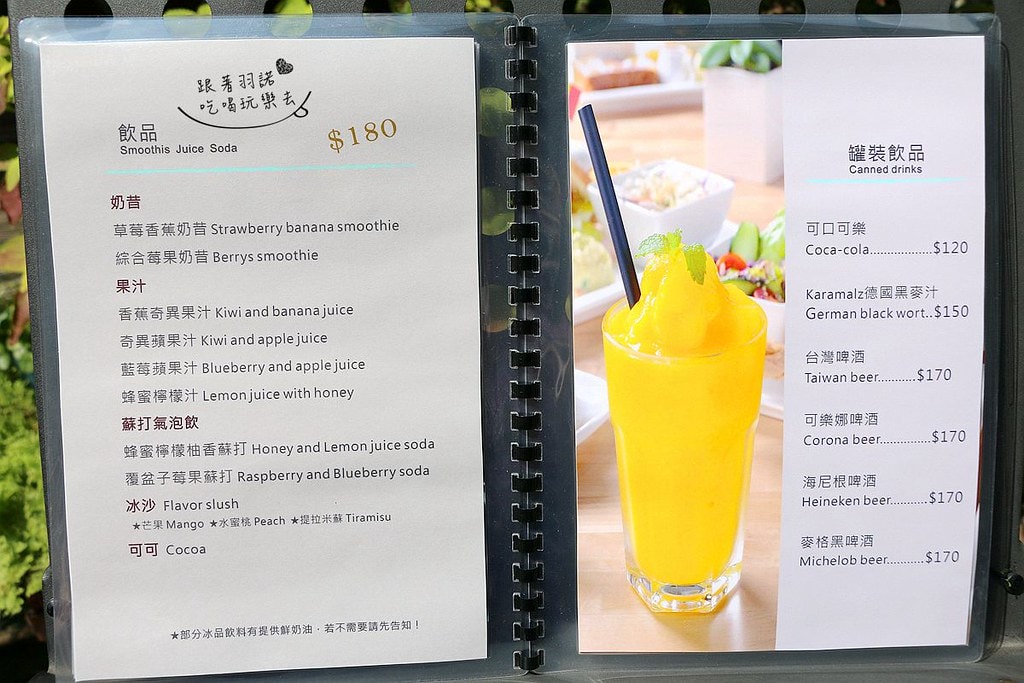 跟著羽諾
吃喝玩樂去
飲品
Smoothis Juice Soda
$180
奶昔
草莓香蕉奶昔 Strawberry banana smoothie
綜合莓果奶昔 Berrys smoothie
果汁
香蕉奇異果汁 Kiwi and banana juice
奇異蘋果汁 Kiwi and apple juice
藍莓蘋果汁 Blueberry and apple juice
蜂蜜檸檬汁 Lemon juice with honey
蘇打氣泡飲
蜂蜜檸檬柚香蘇打 Honey and Lemon juice soda
覆盆子莓果蘇打 Raspberry and Blueberry soda
冰沙 Flavor slush
★芒果 Mango ★水蜜桃 Peach ★提拉米蘇 Tiramisu
可可 Cocoa
★部分冰品飲料有提供鮮奶油，若不需要請先告知！
罐裝飲品
Canned drinks
可口可樂
Coca-cola..................$120
Karamalz德國黑麥汁
German black wort..$150
台灣啤酒
Taiwan beer...........$170
可樂娜啤酒
Corona beer...............$170
海尼根啤酒
Heineken beer...........$170
麥格黑啤酒
Michelob beer...........$170